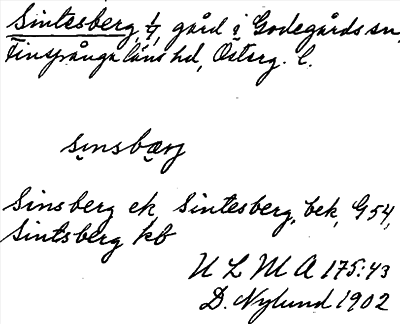 Sintesberg, 1/4, gård i Godegårds sn,
Finspånga läns hd, Österg. l.
sinsbærj
Sinsberg ek, Sintesberg, bek, G 54,
Sintsberg kb
U L M A 175:43
D. Nylund 1902